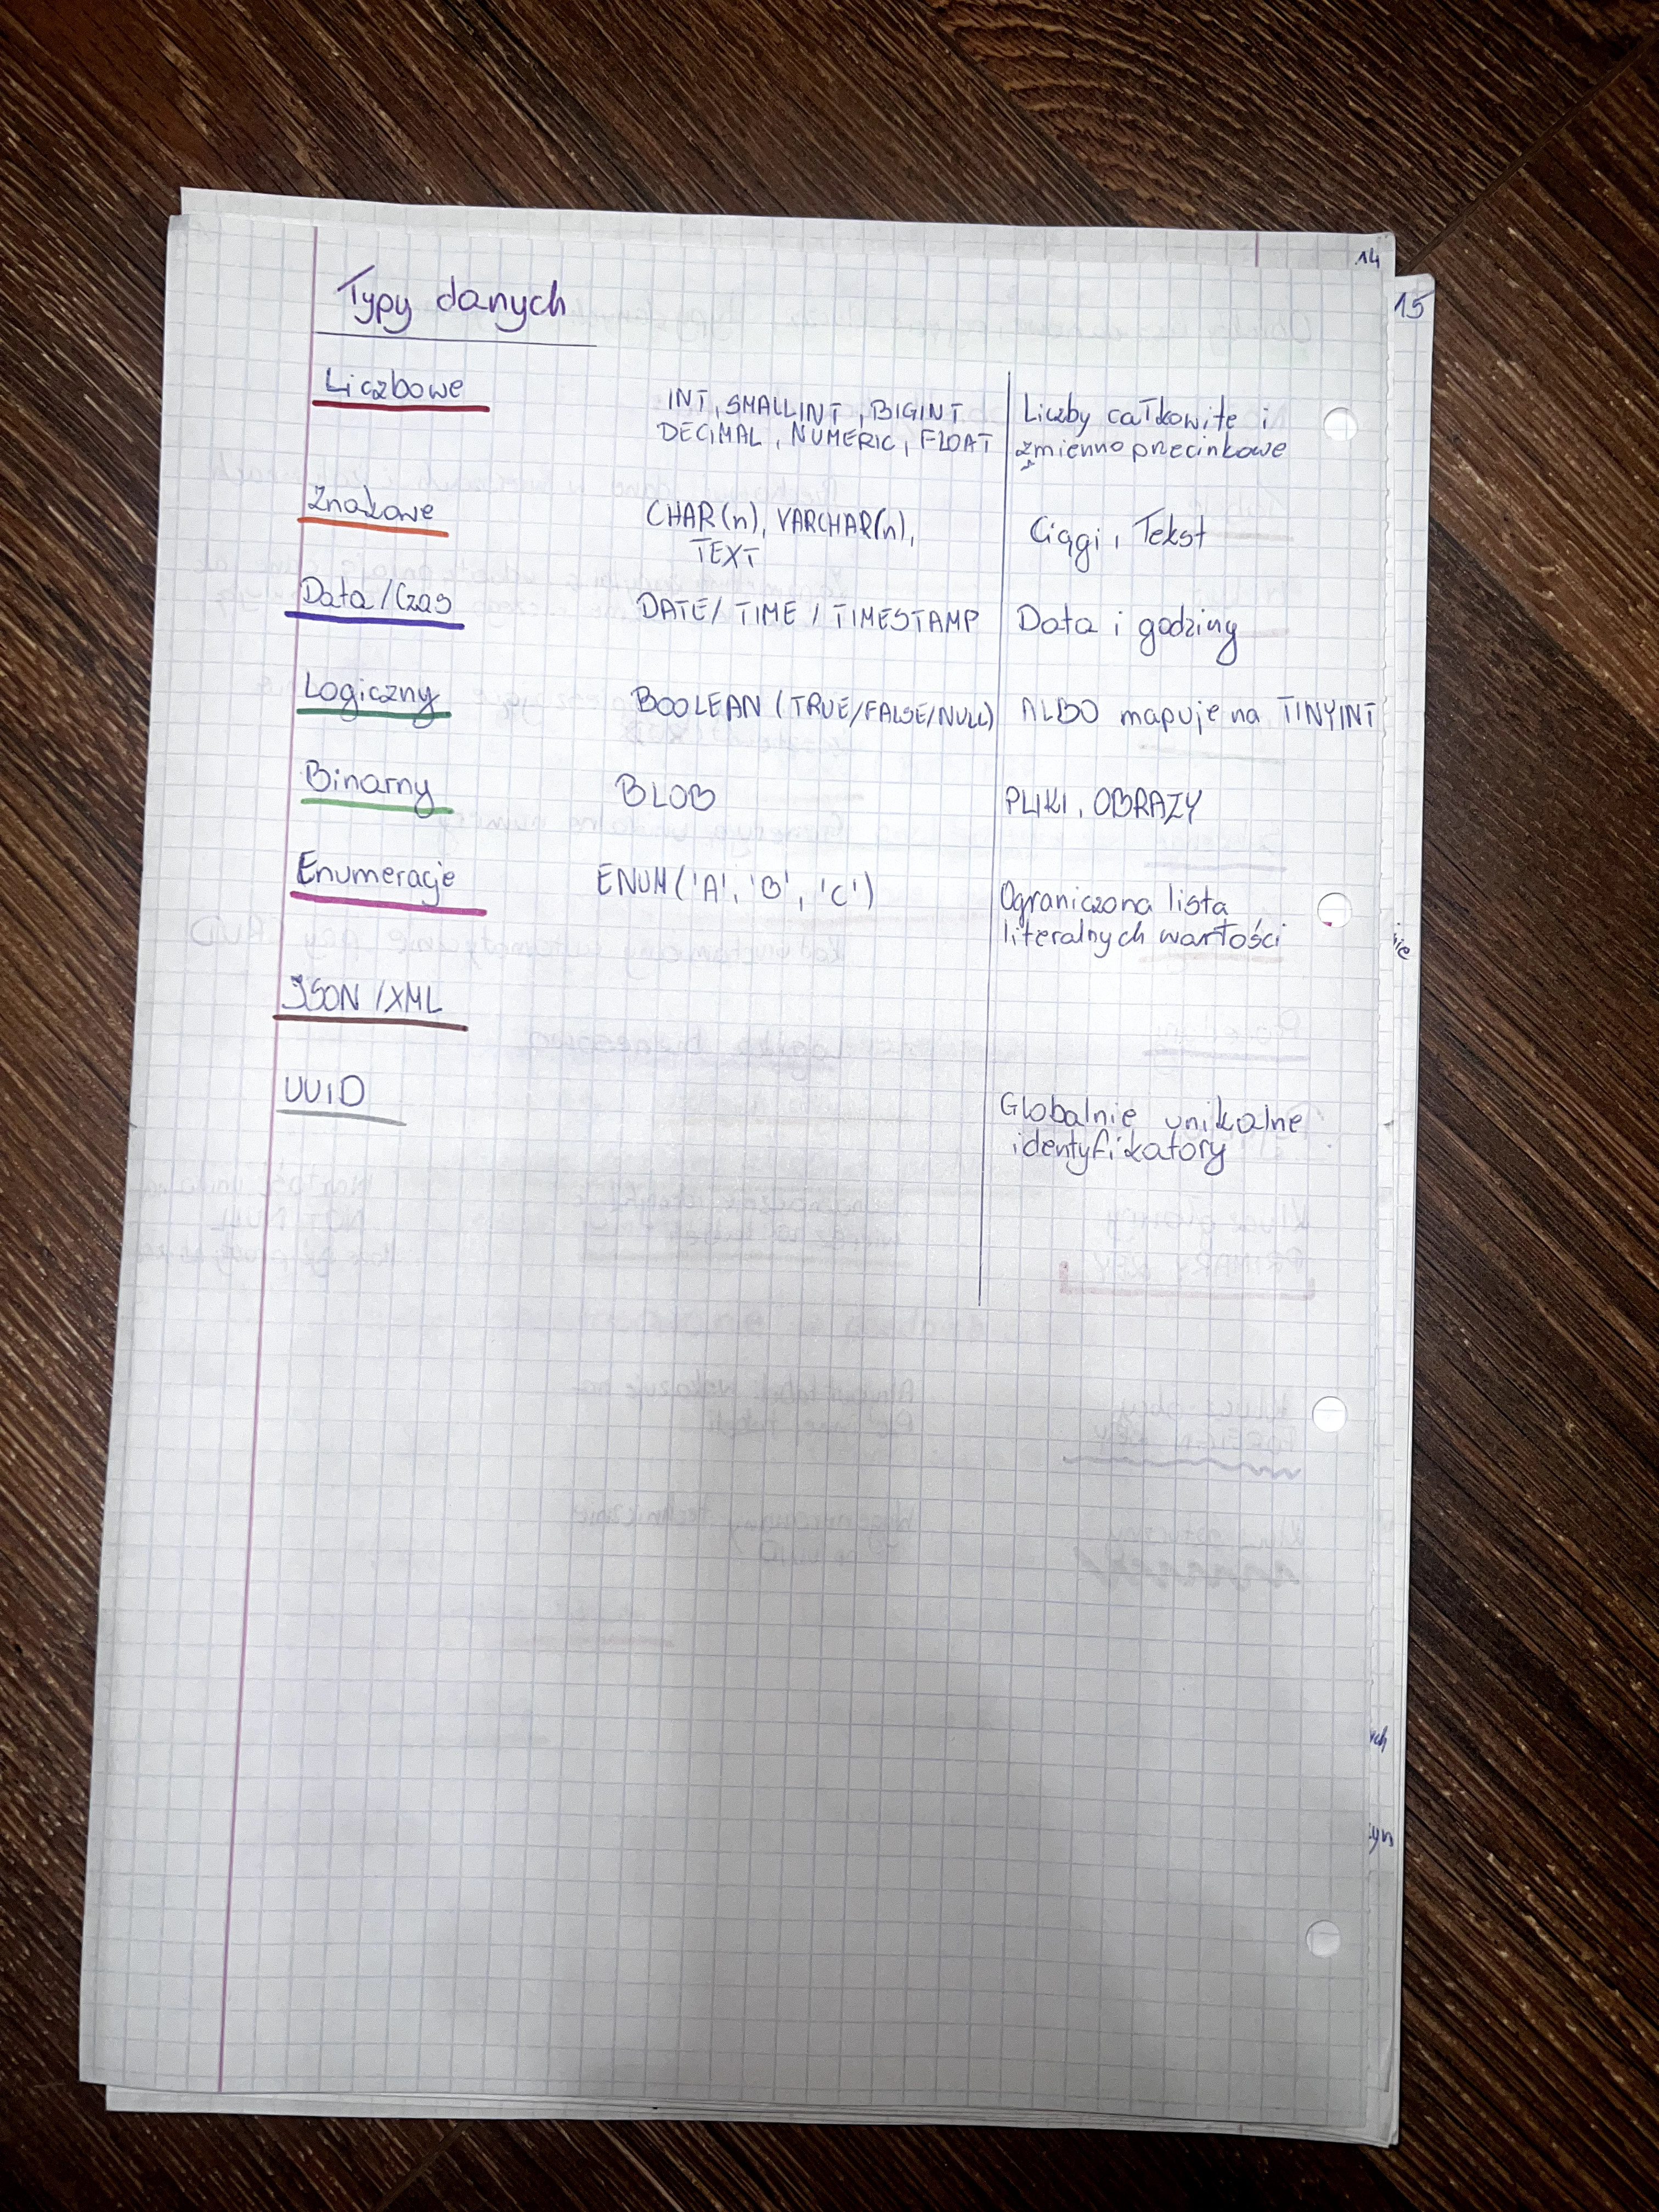 14
15
Typy danych
Liczbowe
INT, SMALLINT, BIGINT
DECIMAL, NUMERIC, FLOAT
Liczby całkowite i
zmienno przecinkowe
Znakowe
CHAR(n), VARCHAR(n),
TEXT
Ciągi, Tekst
Data/Czas
DATE/ TIME / TIMESTAMP
Data i godziny
Logiczny
BOOLEAN (TRUE/FALSE/NULL)
ALBO mapuje na TINYINT
Binarny
BLOB
PLIKI, OBRAZY
Enumeracje
ENUM('A', 'B', 'C')
Ograniczona lista
literalnych wartości
JSON /XML
UUID
Globalnie unikalne
identyfikatory